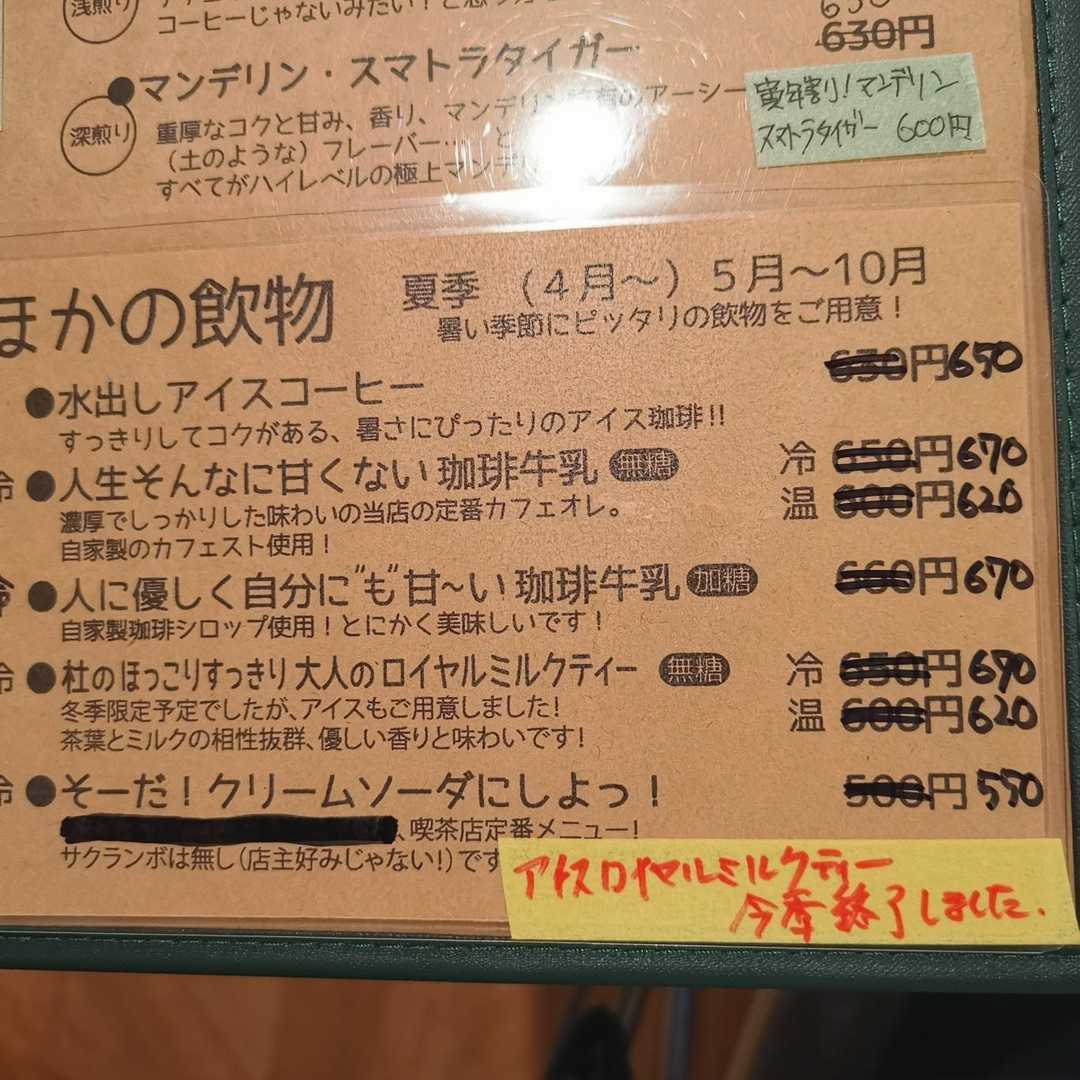 浅煎り
コーヒーじゃないみたい！と思う方
630円
●マンデリン・スマトラタイガー
深煎り
重厚なコクと甘み、香り、マンデリン特有のアーシー
（土のような）フレーバー…
すべてがハイレベルの極上マンデ
寅年割り！マンデリン
スマトラタイガー 600円
ほかの飲物 夏季 （4月～）5月～10月
暑い季節にピッタリの飲物をご用意！
●水出しアイスコーヒー 630円650
すっきりしてコクがある、暑さにぴったりのアイス珈琲!!
冷●人生そんなに甘くない 珈琲牛乳 無糖 冷 650円670
温 600円620
濃厚でしっかりした味わいの当店の定番カフェオレ。
自家製のカフェスト使用！
冷●人に優しく自分に"も"甘～い 珈琲牛乳 加糖 660円670
自家製珈琲シロップ使用！とにかく美味しいです！
冷●杜のほっこりすっきり大人のロイヤルミルクティー 無糖 冷 650円670
温 600円620
冬季限定予定でしたが、アイスもご用意しました!
茶葉とミルクの相性抜群、優しい香りと味わいです!
冷●そーだ！クリームソーダにしよっ！ 500円550
、喫茶店定番メニュー!
サクランボは無し（店主好みじゃない!）です
アイスロイヤルミルクティー
今季終了しました.